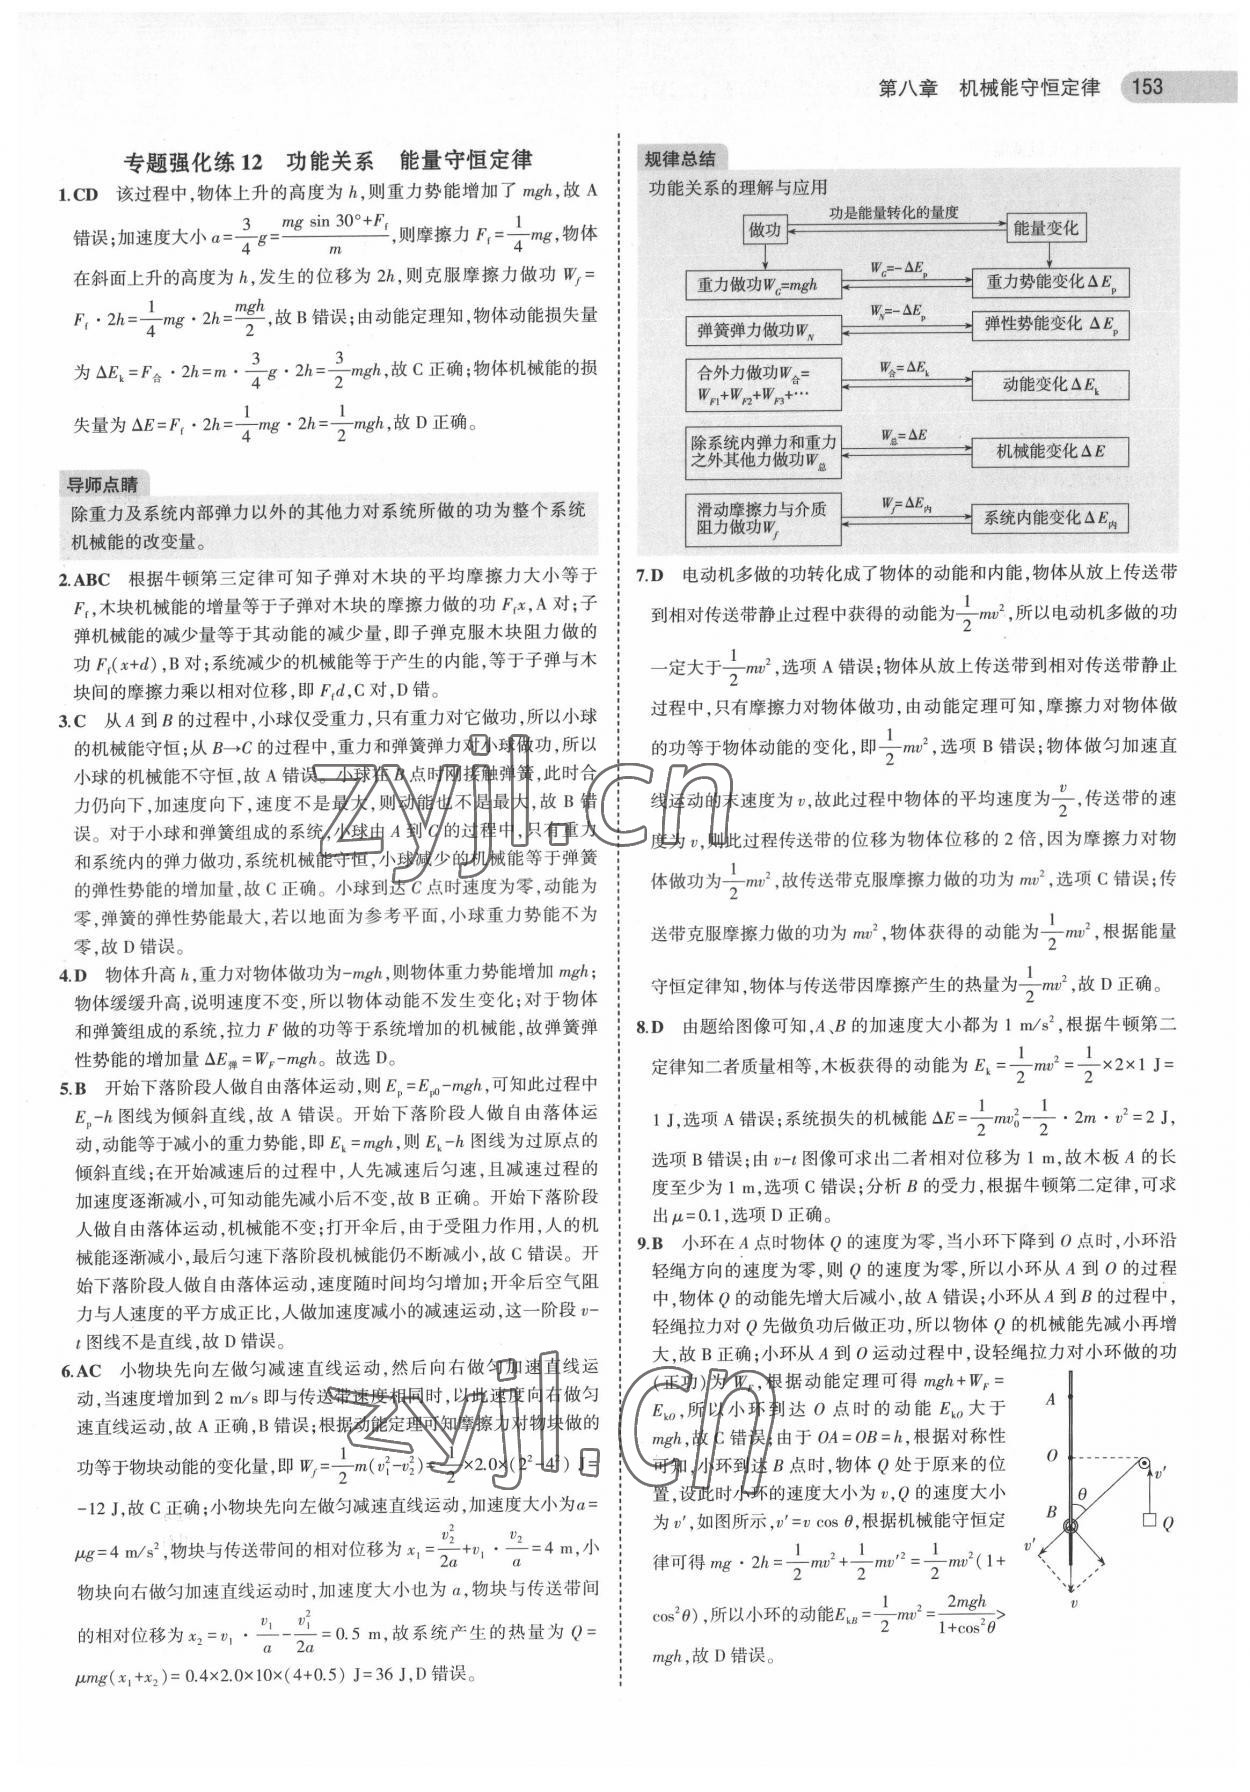 第八章　机械能守恒定律　153
专题强化练12　功能关系　能量守恒定律
1.CD　该过程中,物体上升的高度为h,则重力势能增加了mgh,故A
错误;加速度大小a=3/4g=(mg sin 30°+Ff)/m,则摩擦力Ff=1/4mg,物体
在斜面上升的高度为h,发生的位移为2h,则克服摩擦力做功Wf=
Ff·2h=1/4mg·2h=mgh/2,故B错误;由动能定理知,物体动能损失量
为ΔEk=F合·2h=m·3/4g·2h=3/2mgh,故C正确;物体机械能的损
失量为ΔE=Ff·2h=1/4mg·2h=1/2mgh,故D正确。
导师点睛
除重力及系统内部弹力以外的其他力对系统所做的功为整个系统
机械能的改变量。
2.ABC　根据牛顿第三定律可知子弹对木块的平均摩擦力大小等于
Ff,木块机械能的增量等于子弹对木块的摩擦力做的功Ffx,A对;子
弹机械能的减少量等于其动能的减少量,即子弹克服木块阻力做的
功Ff(x+d),B对;系统减少的机械能等于产生的内能,等于子弹与木
块间的摩擦力乘以相对位移,即Ffd,C对,D错。
3.C　从A到B的过程中,小球仅受重力,只有重力对它做功,所以小球
的机械能守恒;从B→C的过程中,重力和弹簧弹力对小球做功,所以
小球的机械能不守恒,故A错误。小球在B点时刚接触弹簧,此时合
力仍向下,加速度向下,速度不是最大,则动能也不是最大,故B错
误。对于小球和弹簧组成的系统,小球由A到C的过程中,只有重力
和系统内的弹力做功,系统机械能守恒,小球减少的机械能等于弹簧
的弹性势能的增加量,故C正确。小球到达C点时速度为零,动能为
零,弹簧的弹性势能最大,若以地面为参考平面,小球重力势能不为
零,故D错误。
4.D　物体升高h,重力对物体做功为-mgh,则物体重力势能增加mgh;
物体缓缓升高,说明速度不变,所以物体动能不发生变化;对于物体
和弹簧组成的系统,拉力F做的功等于系统增加的机械能,故弹簧弹
性势能的增加量ΔE弹=WF-mgh。故选D。
5.B　开始下落阶段人做自由落体运动,则Ep=Ep0-mgh,可知此过程中
Ep-h图线为倾斜直线,故A错误。开始下落阶段人做自由落体运
动,动能等于减小的重力势能,即Ek=mgh,则Ek-h图线为过原点的
倾斜直线;在开始减速后的过程中,人先减速后匀速,且减速过程的
加速度逐渐减小,可知动能先减小后不变,故B正确。开始下落阶段
人做自由落体运动,机械能不变;打开伞后,由于受阻力作用,人的机
械能逐渐减小,最后匀速下落阶段机械能仍不断减小,故C错误。开
始下落阶段人做自由落体运动,速度随时间均匀增加;开伞后空气阻
力与人速度的平方成正比,人做加速度减小的减速运动,这一阶段v-
t图线不是直线,故D错误。
6.AC　小物块先向左做匀减速直线运动,然后向右做匀加速直线运
动,当速度增加到2 m/s即与传送带速度相同时,以此速度向右做匀
速直线运动,故A正确,B错误;根据动能定理可知摩擦力对物块做的
功等于物块动能的变化量,即Wf=1/2m(v1²-v2²)=1/2×2.0×(2²-4²) J=
-12 J,故C正确;小物块先向左做匀减速直线运动,加速度大小为a=
μg=4 m/s²,物块与传送带间的相对位移为x1=v2²/2a+v1·v2/a=4 m,小
物块向右做匀加速直线运动时,加速度大小也为a,物块与传送带间
的相对位移为x2=v1·v1/a-v1²/2a=0.5 m,故系统产生的热量为Q=
μmg(x1+x2)=0.4×2.0×10×(4+0.5) J=36 J,D错误。
规律总结
功能关系的理解与应用
做功　功是能量转化的量度　能量变化
重力做功WG=mgh　WG=-ΔEp　重力势能变化ΔEp
弹簧弹力做功WN　WN=-ΔEp　弹性势能变化ΔEp
合外力做功W合=
WF1+WF2+WF3+…　W合=ΔEk　动能变化ΔEk
除系统内弹力和重力
之外其他力做功W总　W总=ΔE　机械能变化ΔE
滑动摩擦力与介质
阻力做功Wf　Wf=ΔE内　系统内能变化ΔE内
7.D　电动机多做的功转化成了物体的动能和内能,物体从放上传送带
到相对传送带静止过程中获得的动能为1/2mv²,所以电动机多做的功
一定大于1/2mv²,选项A错误;物体从放上传送带到相对传送带静止
过程中,只有摩擦力对物体做功,由动能定理可知,摩擦力对物体做
的功等于物体动能的变化,即1/2mv²,选项B错误;物体做匀加速直
线运动的末速度为v,故此过程中物体的平均速度为v/2,传送带的速
度为v,则此过程传送带的位移为物体位移的2倍,因为摩擦力对物
体做功为1/2mv²,故传送带克服摩擦力做的功为mv²,选项C错误;传
送带克服摩擦力做的功为mv²,物体获得的动能为1/2mv²,根据能量
守恒定律知,物体与传送带因摩擦产生的热量为1/2mv²,故D正确。
8.D　由题给图像可知,A、B的加速度大小都为1 m/s²,根据牛顿第二
定律知二者质量相等,木板获得的动能为Ek=1/2mv²=1/2×2×1 J=
1 J,选项A错误;系统损失的机械能ΔE=1/2mv0²-1/2·2m·v²=2 J,
选项B错误;由v-t图像可求出二者相对位移为1 m,故木板A的长
度至少为1 m,选项C错误;分析B的受力,根据牛顿第二定律,可求
出μ=0.1,选项D正确。
9.B　小环在A点时物体Q的速度为零,当小环下降到O点时,小环沿
轻绳方向的速度为零,则Q的速度为零,所以小环从A到O的过程
中,物体Q的动能先增大后减小,故A错误;小环从A到B的过程中,
轻绳拉力对Q先做负功后做正功,所以物体Q的机械能先减小再增
大,故B正确;小环从A到O运动过程中,设轻绳拉力对小环做的功
(正功)为WF,根据动能定理可得mgh+WF=
EkO,所以小环到达O点时的动能EkO大于
mgh,故C错误;由于OA=OB=h,根据对称性
可知,小环到达B点时,物体Q处于原来的位
置,设此时小环的速度大小为v,Q的速度大小
为v′,如图所示,v′=v cos θ,根据机械能守恒定
律可得mg·2h=1/2mv²+1/2mv′²=1/2mv²(1+
cos²θ),所以小环的动能EkB=1/2mv²=2mgh/(1+cos²θ)>
mgh,故D错误。
A
O
v′
θ
B
Q
v′
v
zyjl.cn
zyjl.cn